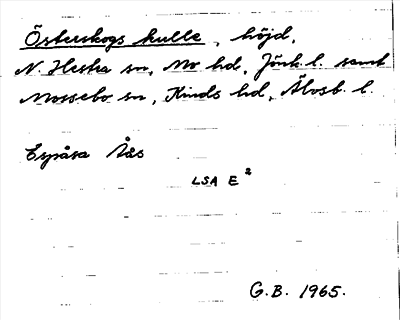 Österskogs kulle, höjd,
N. Hestra sn, Mo hd, Jönk. l. samt
Mossebo sn, Kinds hd, Älvsb. l.
Espåsa Ås
LSA E²
G.B. 1965.